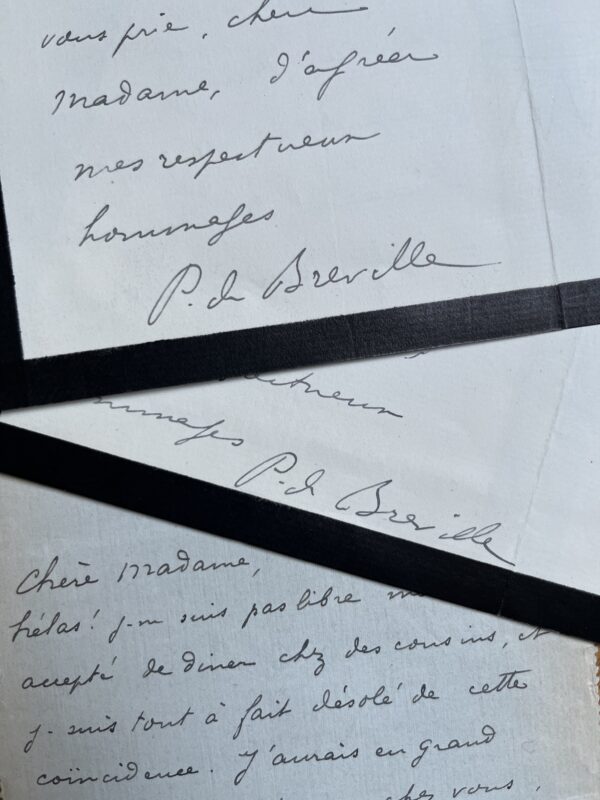 vous prie, chère
Madame, d'agréer
mes respectueux
hommages
P. de Breville
hommages
P. de Breville
Chère Madame,
hélas! je ne suis pas libre
accepté de diner chez des cousins, et
je suis tout à fait désolé de cette
coïncidence. J'aurais eu grand
chez vous,